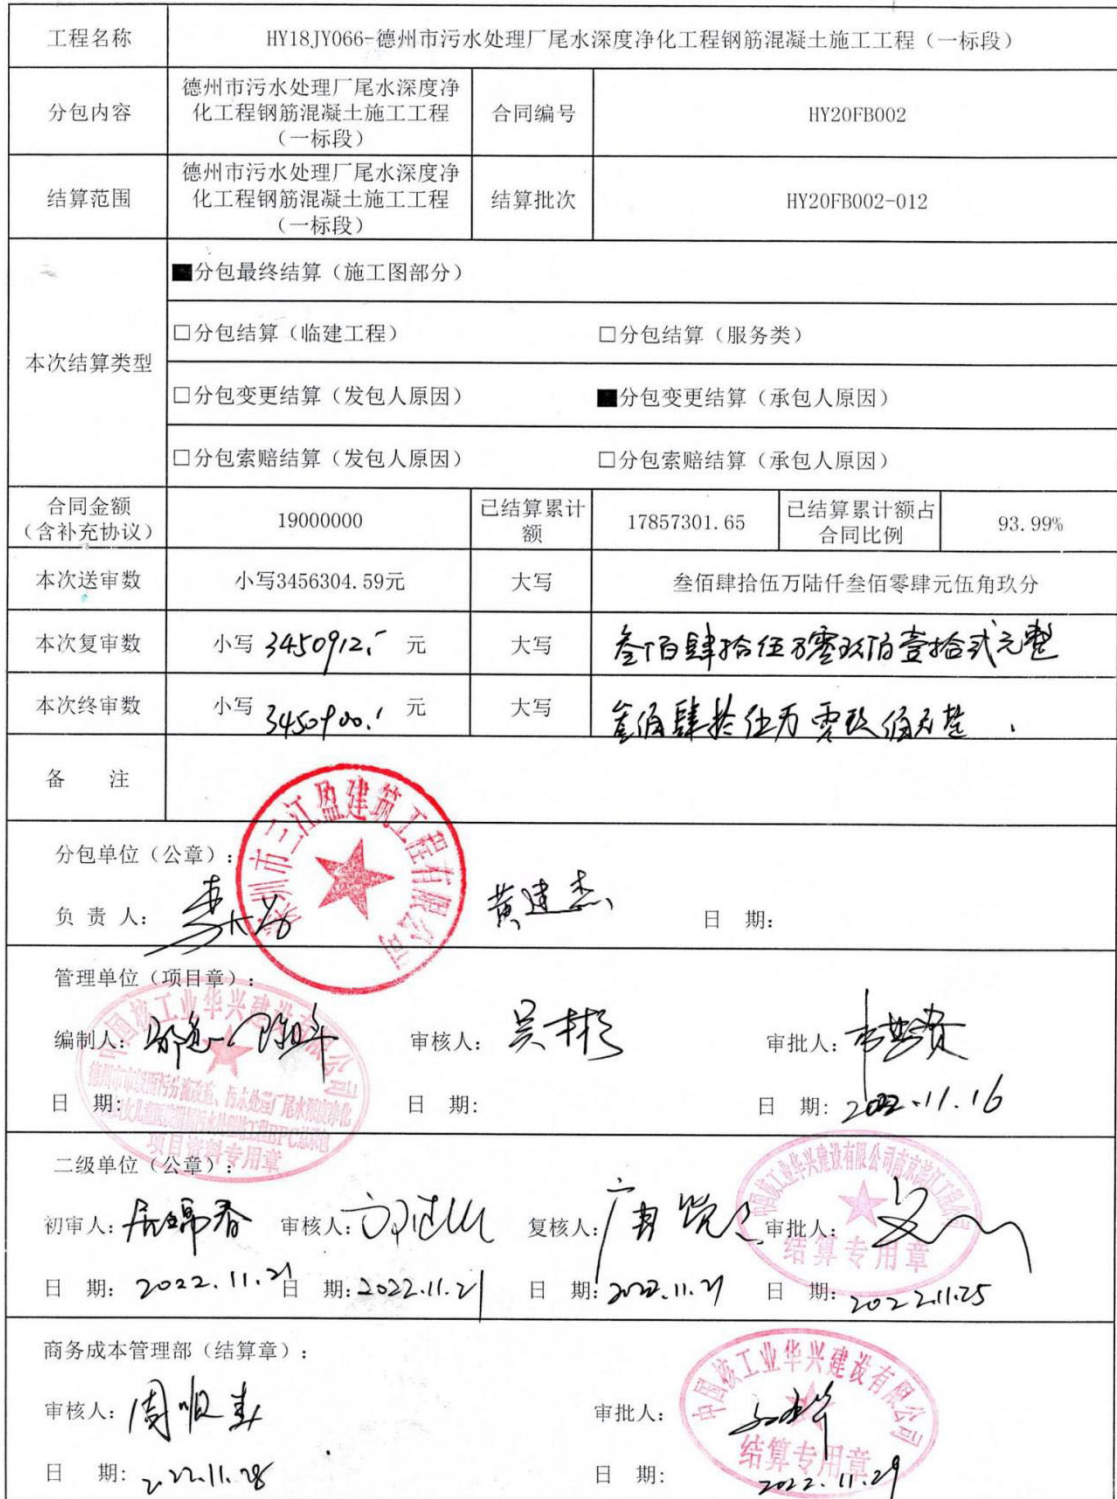 工程名称 HY18JY066-德州市污水处理厂尾水深度净化工程钢筋混凝土施工工程（一标段）
分包内容 德州市污水处理厂尾水深度净化工程钢筋混凝土施工工程（一标段） 合同编号 HY20FB002
结算范围 德州市污水处理厂尾水深度净化工程钢筋混凝土施工工程（一标段） 结算批次 HY20FB002-012
本次结算类型
■分包最终结算（施工图部分）
□分包结算（临建工程） □分包结算（服务类）
□分包变更结算（发包人原因） ■分包变更结算（承包人原因）
□分包索赔结算（发包人原因） □分包索赔结算（承包人原因）
合同金额（含补充协议） 19000000 已结算累计额 17857301.65 已结算累计额占合同比例 93.99%
本次送审数 小写3456304.59元 大写 叁佰肆拾伍万陆仟叁佰零肆元伍角玖分
本次复审数 小写 3450912.- 元 大写 叁佰肆拾伍万零玖佰壹拾贰元整
本次终审数 小写 3450900.- 元 大写 叁佰肆拾伍万零玖佰元整
备 注
分包单位（公章）：
市三江盈建筑工程有限公司
负 责 人： 黄建杰 日 期：
管理单位（项目章）：
中国核工业华兴建设有限公司
编制人： 审核人：吴彬 审批人：
项目资料专用章
日 期： 日 期： 日 期：2022.11.16
二级单位（公章）：
中国核工业华兴建设有限公司南京滨江工程公司
结算专用章
初审人： 审核人： 复核人： 审批人：
日 期：2022.11.21 日 期：2022.11.21 日 期：2022.11.21 日 期：2022.11.25
商务成本管理部（结算章）：
中国核工业华兴建设有限公司
结算专用章
审核人： 审批人：
日 期：2022.11.28 日 期：2022.11.29